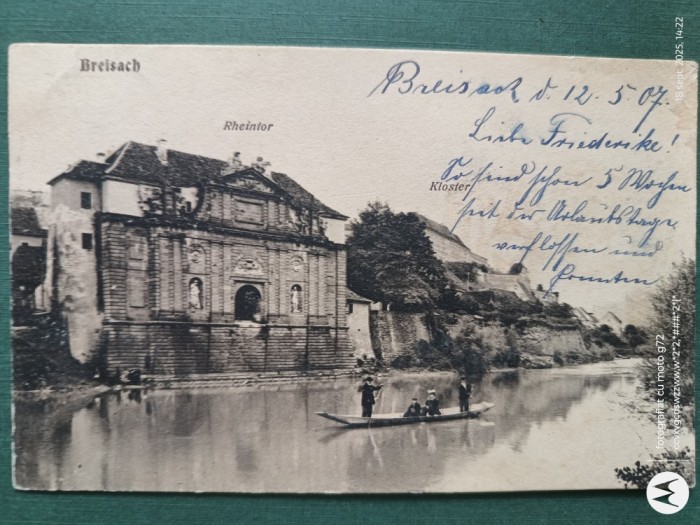 Breisach
Rheintor
Kloster
Breisach d. 12. 5. 07.
Liebe Friederike!
So sind schon 5 Wochen
seit der Urlaubstage
verflossen und
konnten
18 sept. 2025, 14:22
fotografiat cu moto g72